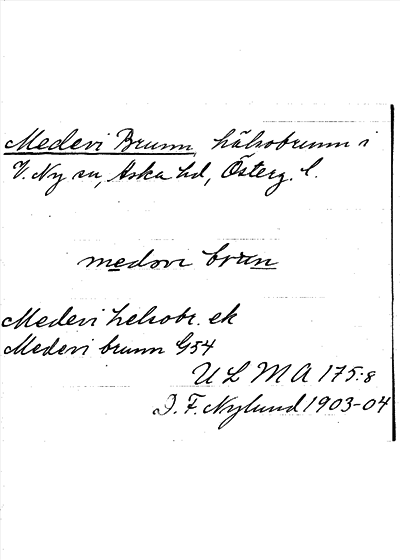 Medevi Brunn, hälsobrunn i
V. Ny sn, Aska hd, Österg. l.
medəvi brun
Medevi helsobr. ek
Medevi brunn G54
ULMA 175:8
I. F. Nylund 1903-04